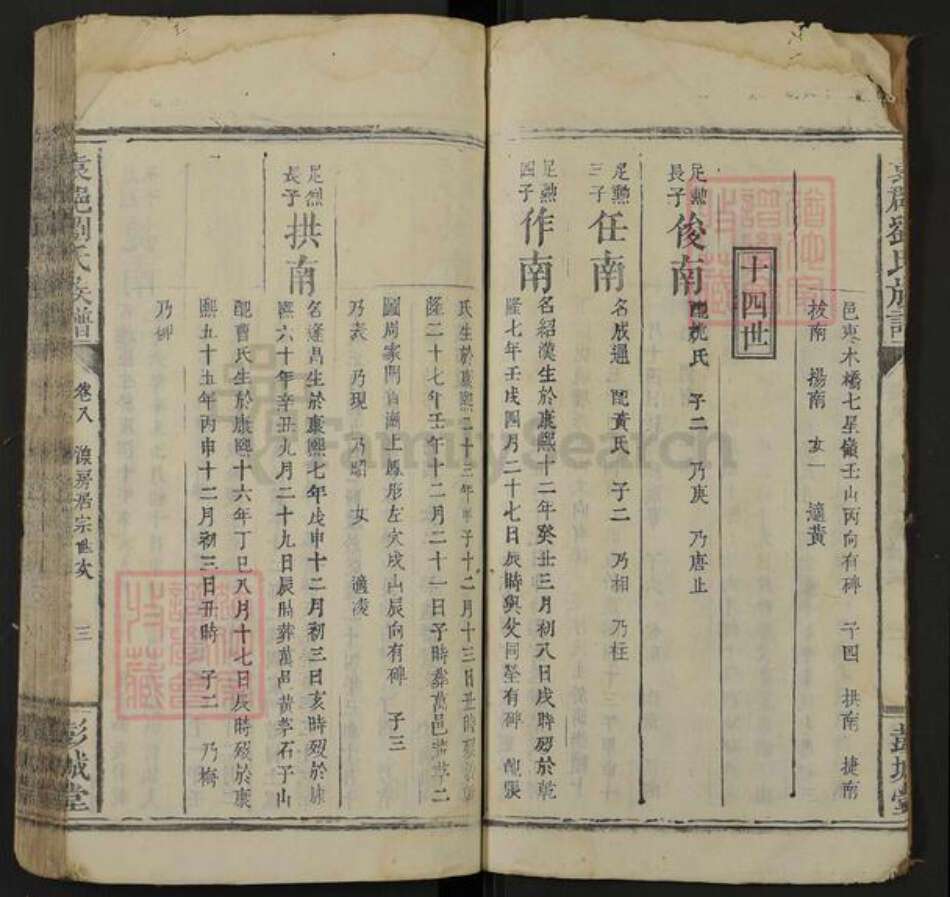 邑枣木橋七星嶺壬山丙向有碑 子四 拱南 捷南
拔南 揚南 女一 適黄
十四世
足勲長子俊南 配姚氏 子二 乃庚 乃唐止
足勲三子任南 名成通 配黄氏 子二 乃相 乃柱
足勲四子作南 名紹漢生於康熙十二年癸丑三月初八日戌時殁於乾
隆七年壬戌四月二十七日辰時與父同塋有碑 配張
氏生於康熙二十三年甲子十二月十三日丑時殁於乾
隆二十七年壬午十二月二十一日子時葬萬邑黄茅二
圖周家門首湖上鳳形左穴戌山辰向有碑 子三
乃表 乃現 乃顯 女 適凌
足烈長子拱南 名逢昌生於康熙七年戊申十二月初三日亥時殁於康
熙六十年辛丑九月二十九日辰時葬萬邑黄茅石子山
配曹氏生於康熙十六年丁巳八月十七日辰時殁於康
熙五十五年丙申十二月初三日丑時 子二 乃梅
乃
袁邑劉氏族譜 卷八 房居宗世次 三 彭城堂